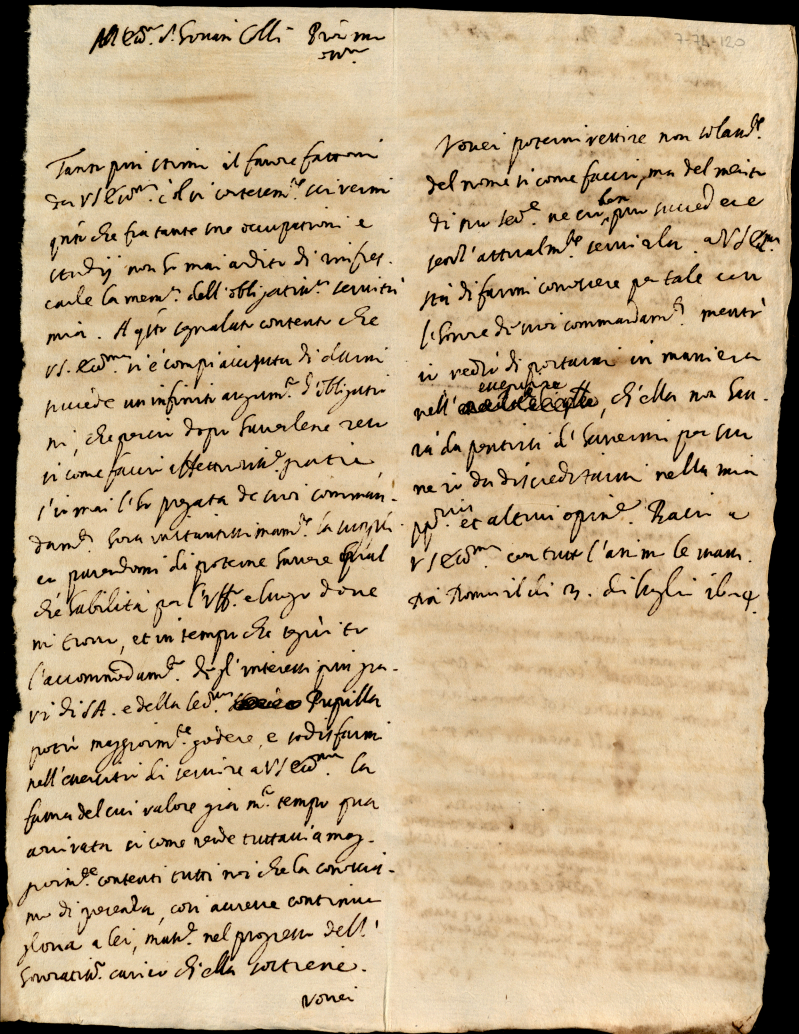 All Ecc.mo S.r Giovani Colli Proi mu
7-74-120
Tanto più stimo il favore fattomi
da VS Ecc.ma col si cortesem.te scrivermi
q.to che fra tante sue occupationi e
studij non ho mai ardito di rinfres-
carle la mem.a dell'obligatiss.a servitù
mia. A q.to segnalato contento che
VS. Ecc.ma si è compiaciuta di darmi
succede un infinito argum.to d'obligatio
ni, che perciò dopo haverlene reso
si come faccio affettuosiss.e gratie
l'ho pregata de suoi comman-
dam.ti hora instantissimam.te la supplico
parendomi di poterne havere qual
che habilità per l'Uff.o e luogo dove
mi trovo, et in tempo che seguito
l'accommodam.to degl'interessi più gra-
vi di SA. e della Ser.ma Pupilla
potrò maggiorm.te godere, e sodisfarmi
nell'essercitio di servire a VS Ecc.ma la
fama del cui valore già m.to tempo qua
arrivata si come rende tuttavia mag-
giorm.te contenti tutti noi che la conoscia-
mo di presenza, così accresce continua
gloria a lei, mass.e nel progresso dell'
honoratiss.o carico ch'ella sostiene.
Vorrei
Vorrei potermi vestire non solam.te
del nome si come faccio, ma del merito
di suo ser.re ne cui ben può succedere
servo attualm.te a VS Ecc.ma
stà di farmi conoscere per tale con
l'honore di suoi commandam.ti mentr'
io vedrò di portarmi in maniera
nell' essequire, ch'ella non hav-
rà da pentirsi d'havermi per suo
ne io da discreditarmi nella mia
pp.ria et altrui opin.e Bacio a
VS Ecc.ma con tutto l'animo le mani.
Di Roma il dì 3. di luglio 1624.